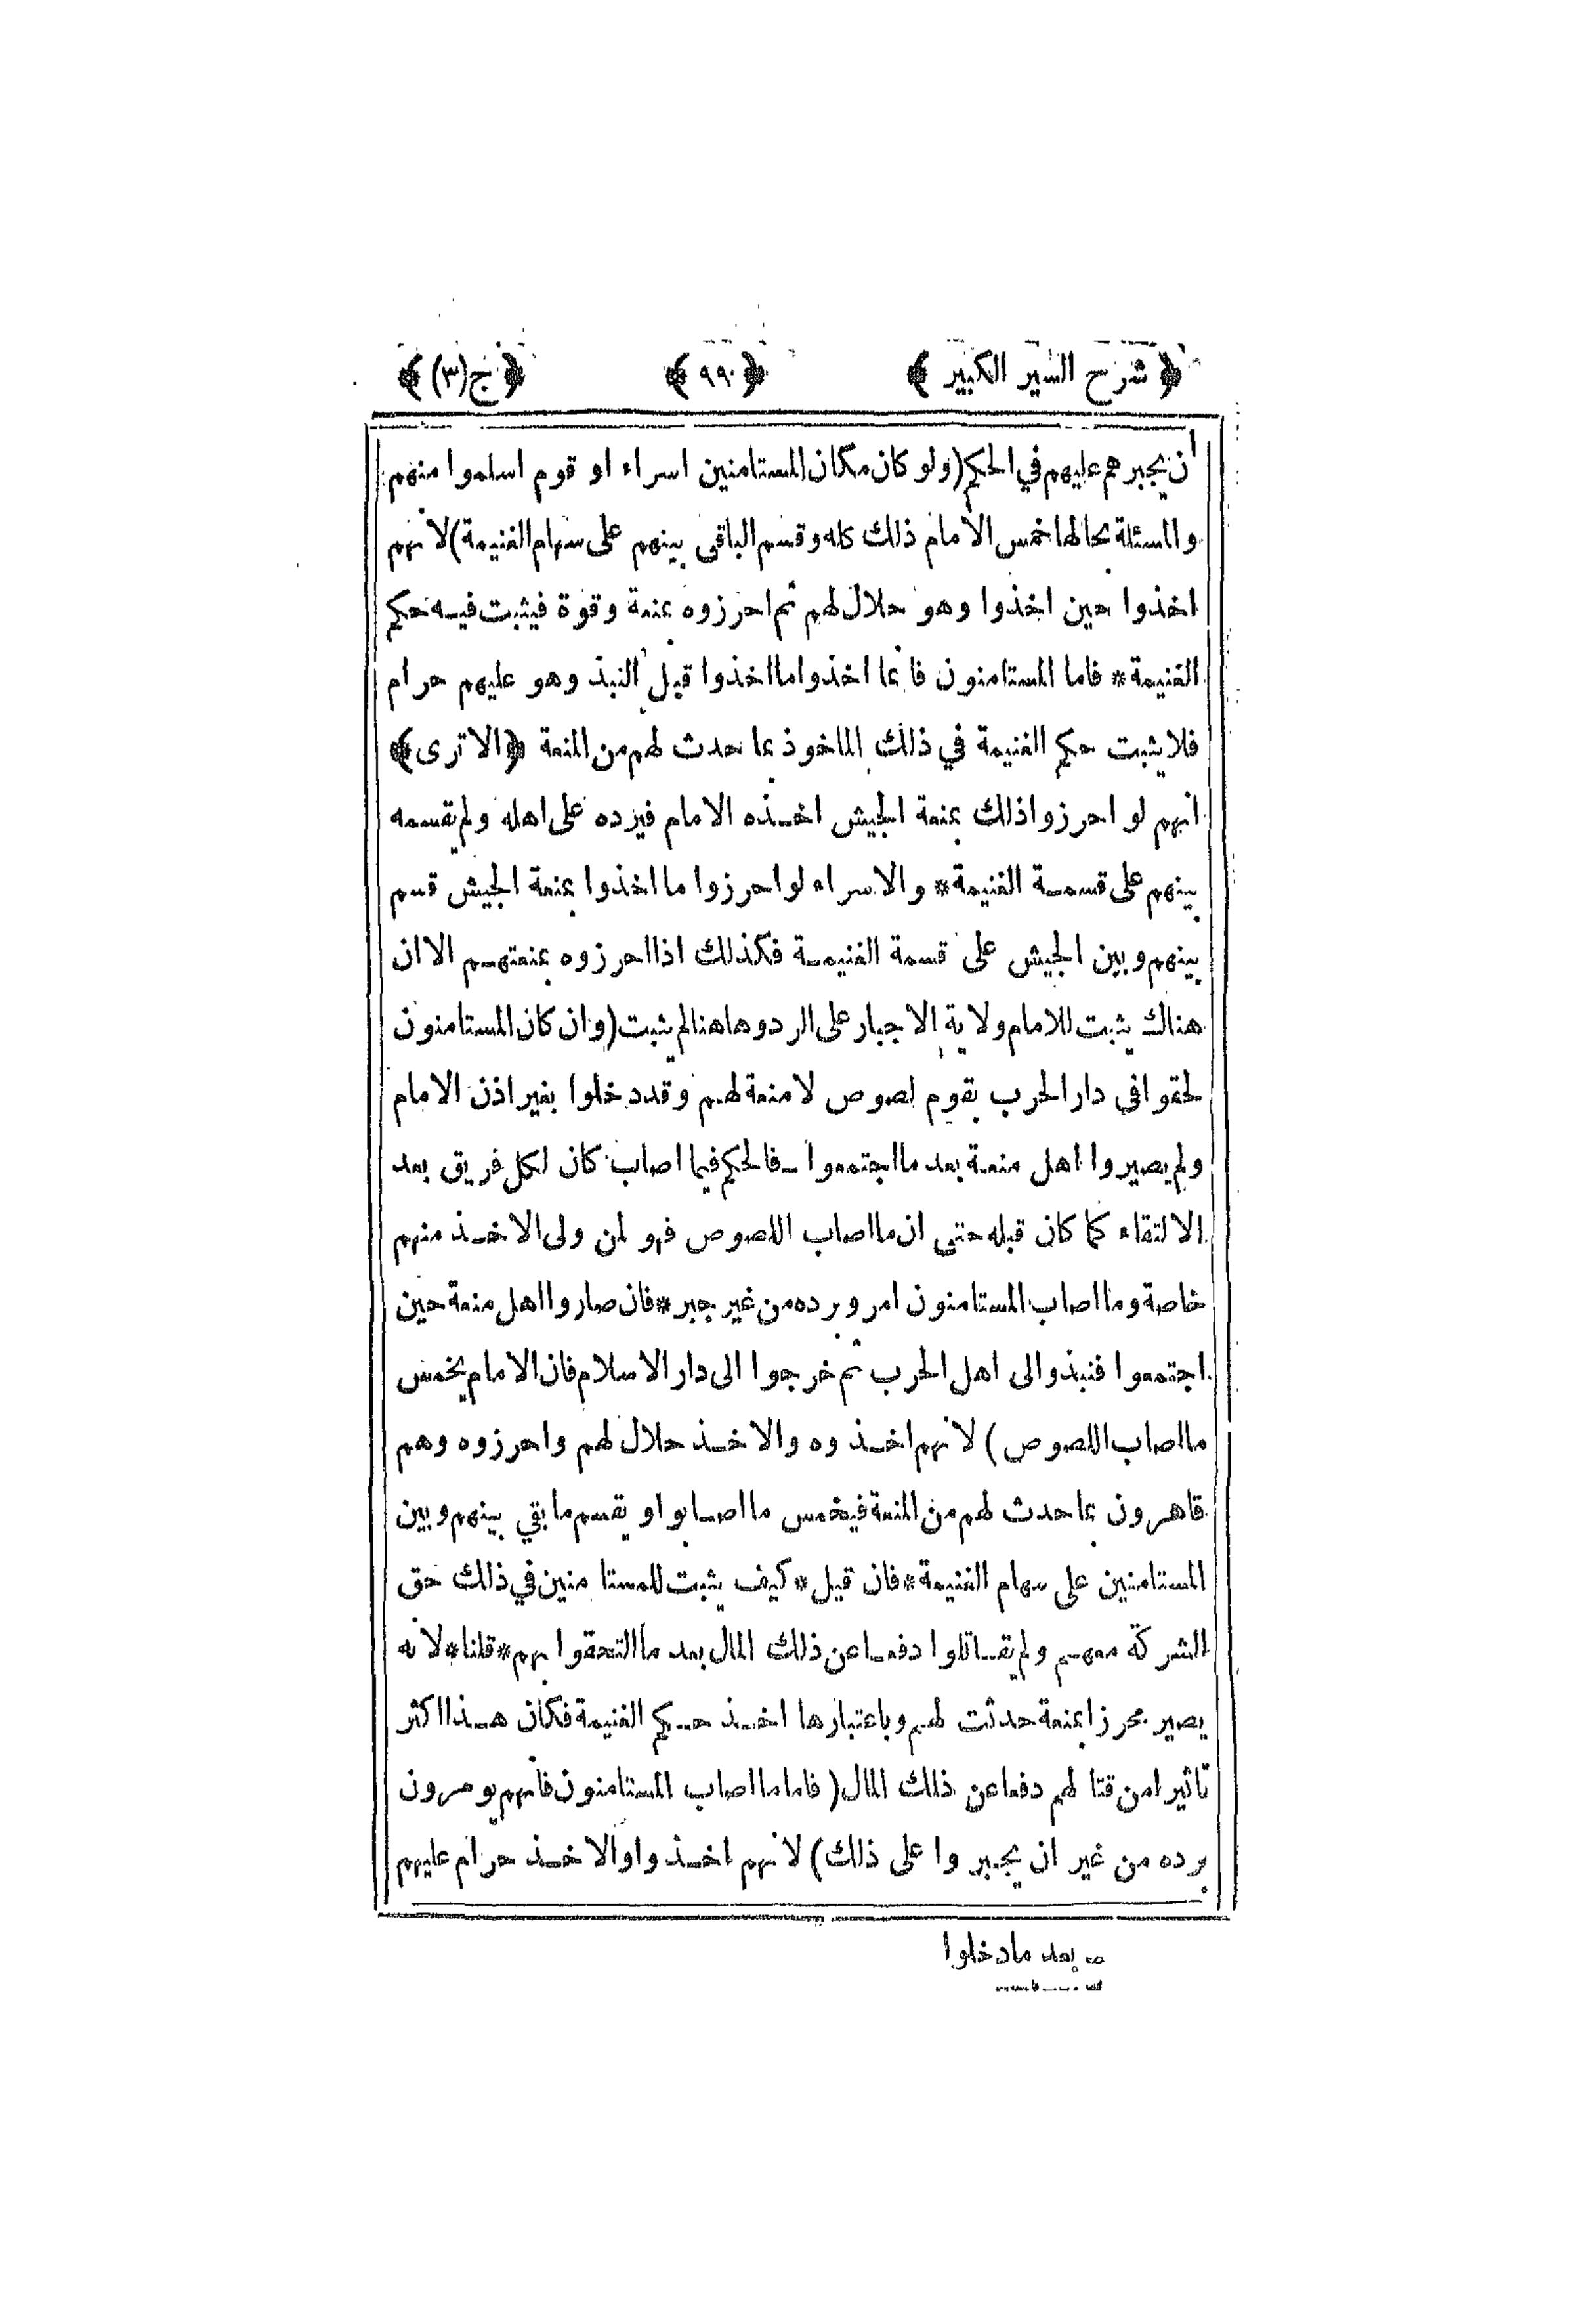 ﴿ شرح السير الكبير ﴾ ﴿ ٩٩٠ ﴾ ﴿ ج (٣) ﴾
ان يجبرهم عليهم في الحكم (ولو كان مكان المستامنين اسراء او قوم اسلموا منهم
والمسئلة بحالها خمس الامام ذلك كله وقسم الباقى بينهم على سهام الغنيمة) لانهم
اخذوا حين اخذوا وهو حلال لهم ثم احرزوه بمنعة وقوة فيثبت فيه حكم
الغنيمة * فاما المستامنون فانما اخذوا ما اخذوا قبل النبذ وهو عليهم حرام
فلا يثبت حكم الغنيمة في ذلك الماخوذ بما حدث لهم من المنعة ﴿ الا ترى ﴾
انهم لو احرزوا ذلك بمنعة الجيش اخذه الامام فيرده على اهله ولم يقسمه
بينهم على قسمة الغنيمة * والاسراء لو احرزوا ما اخذوا بمنعة الجيش قسم
بينهم وبين الجيش على قسمة الغنيمة فكذلك اذا احرزوه بمنعتهم الا ان
هناك يثبت للامام ولاية الاجبار على الرد وهاهنا لم يثبت (وان كان المستامنون
لحقوا في دار الحرب بقوم لصوص لا منعة لهم وقد دخلوا بغير اذن الامام
ولم يصيروا اهل منعة بعد ما اجتمعوا فالحكم فيما اصاب كان لكل فريق بعد
الالتقاء كما كان قبله حتى ان ما اصاب اللصوص فهو لمن ولى الاخذ منهم
خاصة وما اصاب المستامنون امروا برده من غير جبر * فان صاروا اهل منعة حين
اجتمعوا فنبذوا الى اهل الحرب ثم خرجوا الى دار الاسلام فان الامام يخمس
ما اصاب اللصوص) لانهم اخذوه والاخذ حلال لهم واحرزوه وهم
قاهرون بما حدث لهم من المنعة فيخمس ما اصابوا و يقسم ما بقي بينهم وبين
المستامنين على سهام الغنيمة * فان قيل * كيف يثبت للمستامنين في ذلك حق
الشركة معهم ولم يقاتلوا دفعا عن ذلك المال بعد ما التحقوا بهم * قلنا * لانه
يصير محرزا بمنعة حدثت لهم وباعتبارها اخذ حكم الغنيمة فكان هذا اكثر
تاثيرا من قتالهم دفعا عن ذلك المال (فاما ما اصاب المستامنون فانهم يومرون
برده من غير ان يجبروا على ذلك) لانهم اخذوا والاخذ حرام عليهم
بعد ما دخلوا